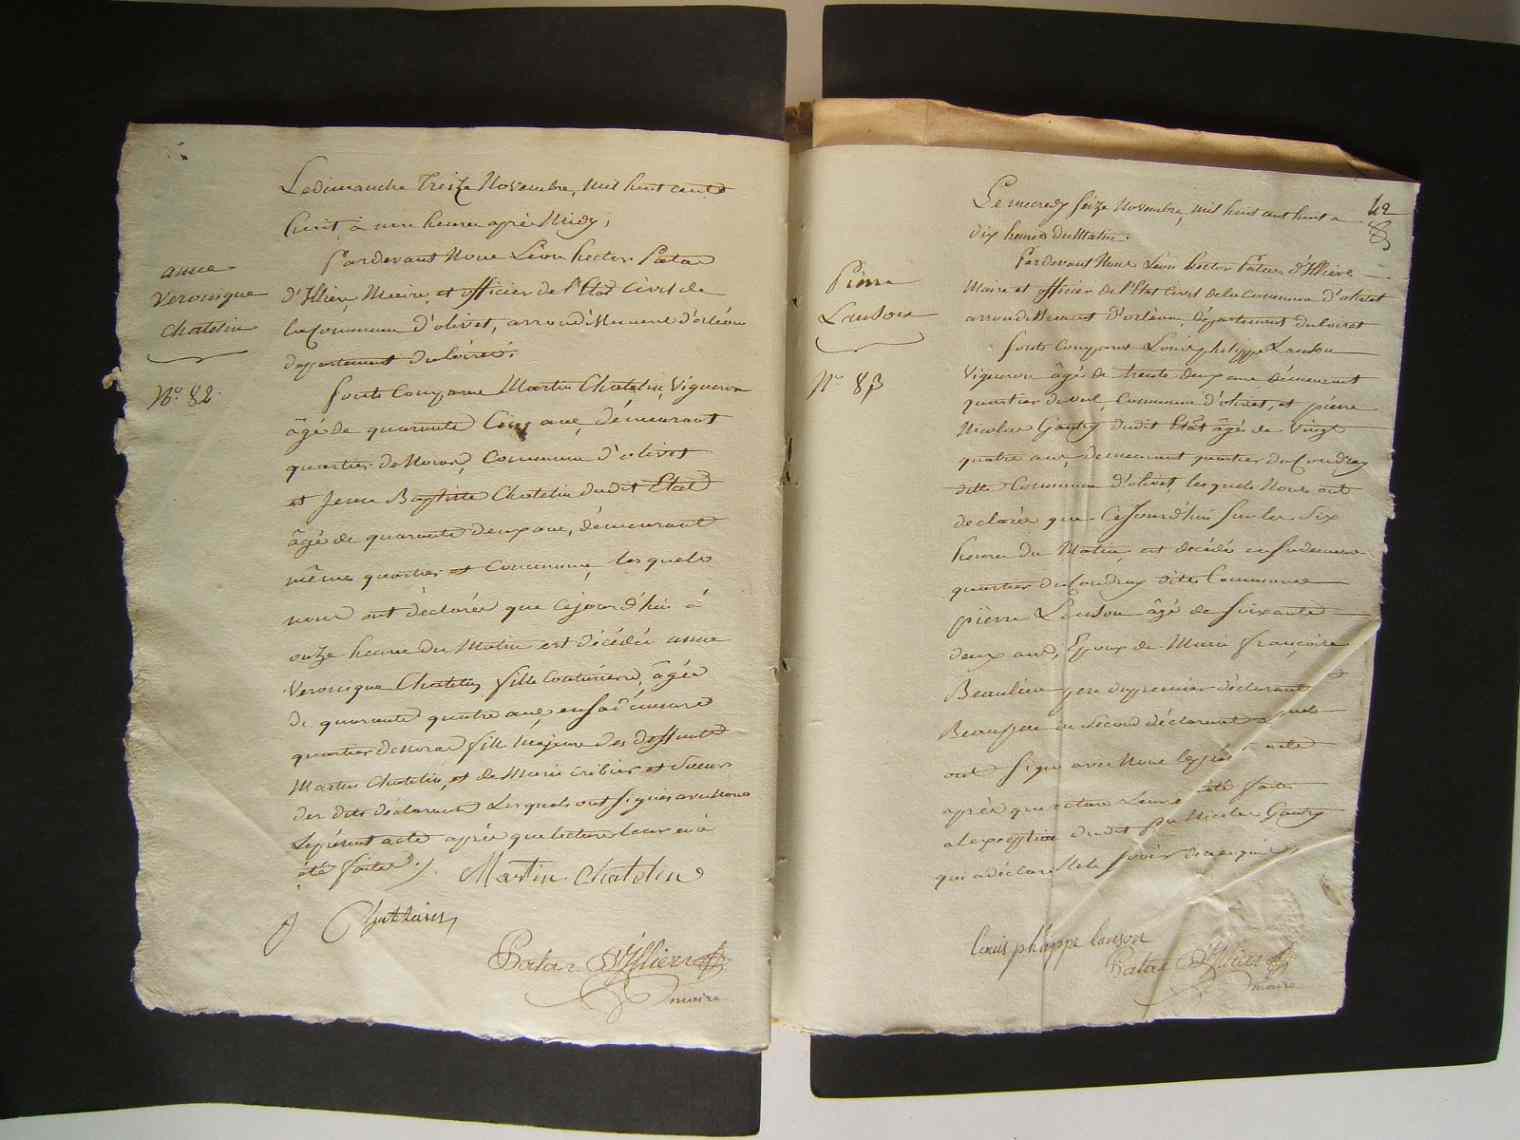 Le dimanche Treize Novembre, mil huit cents
huit, à une heure après Midy,
Pardevant Nous Léon hector Patas
d'Illiers, Maire, et officier de l'Etat Civil de
la Commune d'olivet, arrondissement d'orléans
département du loiret.
anne
Veronique
Chatelin
N.o 82.
sont Comparus Martin Chatelin, Vigneron
âgé de quarante Cinq ans, démeurant
quartier de Noras, Commune d'olivet
et Jean Baptiste Chatelin dudit Etat
âgé de quarante deux ans, démeurant
même quartier et Commune, lesquels
nous ont déclarés que cejourd'hui à
onze heures du Matin est décédée anne
Veronique Chatelin fille Couturiere, âgée
de quarante quatre ans en sa demeure
quartier de Noras fille Majeure des deffunts
Martin Chatelin, et de Marie cribier et Soeur
des dits déclarants Lesquels ont signés avec Nous
le présent acte après que lecture leur en à
été faite ./.
Martin Chatelin
Chatelain
Patas D'Illiers
maire
42
Le mercredy Seize Novembre, mil huit cent huit à
dix heures du Matin.
Pierre
Lanson
N.o 83
Pardevant Nous Léon hector Patas d'Illiers
Maire et officier de l'Etat Civil de la Commune d'olivet
arrondissement d'orléans, département du loiret
sont Comparus Louis philippe Lanson
Vigneron âgé de trente deux ans démeurant
quartier du Commune d'olivet, et pierre
Nicolas Gaudry dudit Etat âgé de Vingt
quatre ans, demeurant quartier du Coudray
ditte Commune d'olivet, lesquels Nous ont
declarés que Cejourd'hui Sur les Six
heures du Matin est décédé en sa demeure
quartier du Coudray ditte Commune
pierre Lanson âgé de Soixante
deux ans, Epoux de Marie françoise
Beaulieu pere du premier déclarant
Beaupere du second déclarant
ont signé avec Nous le présent acte
après que lecture Leur à été faite
a l'exception dudit pre Nicolas Gaudry
qui a déclaré Ne le Savoir
Louis philippe lanson
Patas D'Illiers
maire